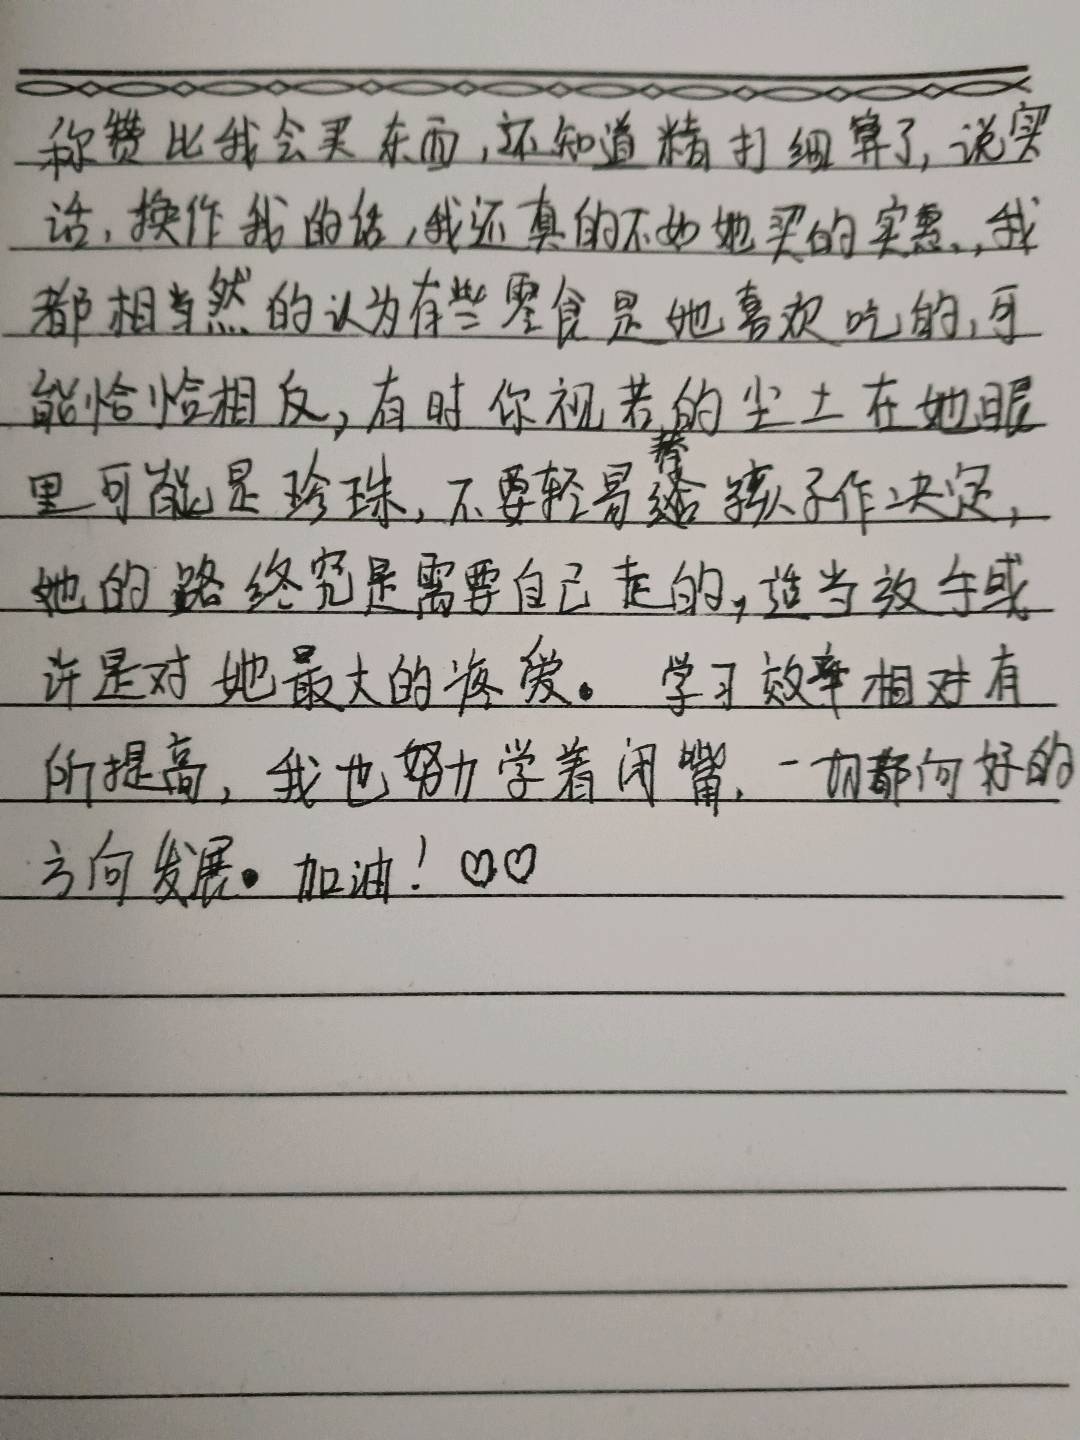 称赞比我会买东西,还知道精打细算了,说实
话,换作我的话,我还真的不如她买的实惠,我
都相当然的认为有些零食是她喜欢吃的,可
能恰恰相反,有时你视若的尘土在她眼
里可能是珍珠,不要轻易替孩子作决定,
她的路终究是需要自己走的,适当放手或
许是对她最大的疼爱。学习效率相对有
所提高,我也努力学着闭嘴,一切都向好的
方向发展。加油!♡♡